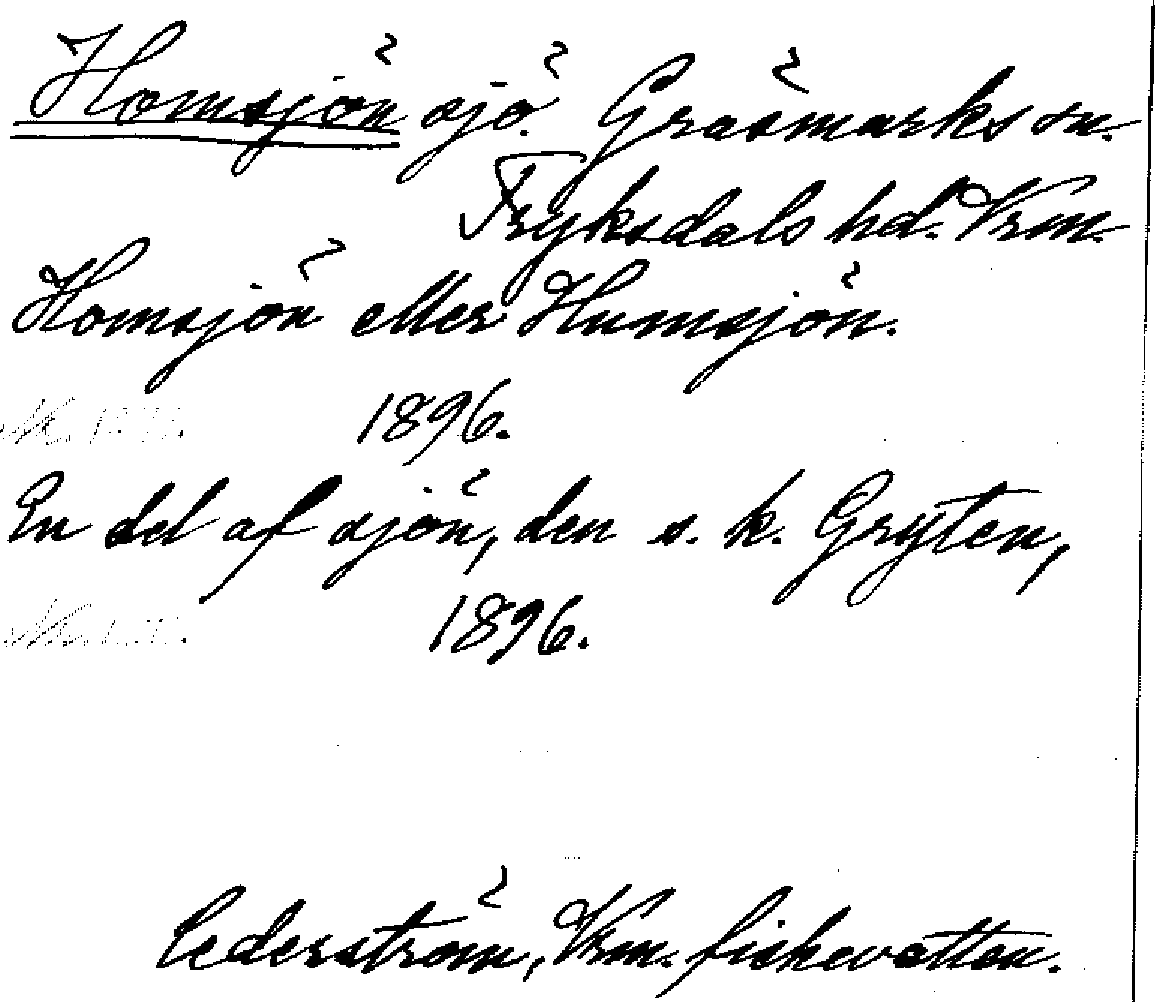 Homsjön sjö. Gräsmarks sn.
Fryksdals hd. Vrm.
Homsjön eller Humsjön.
1896.
En del af sjön, den s. k. Gryten,
1896.
Cederström, Vrm. fiskevatten.